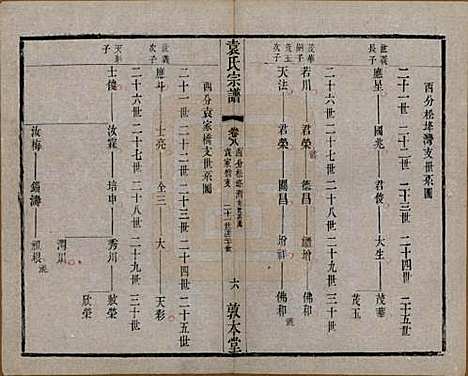 西分松垰灣支世系圖
二十一世 二十二世 二十三世 二十四世 二十五世
世義長子 應星 國兆 君俊 大生 茂華
茂玉
二十六世 二十七世 二十八世 二十九世 三十世
茂華嗣子 若川 君榮 德昌 繼增 佛和
茂玉次子 天法 君榮 關昌 增祥 佛和
袁氏宗譜
卷八
袁家橋支
二十一世至三十世
六
敦本堂
西分袁家橋支世系圖
二十一世 二十二世 二十三世 二十四世 二十五世
世義次子 應斗 士亮 全三 大 天彩
二十六世 二十七世 二十八世 二十九世 三十世
天彩子 士俊 汝霖 培申 秀川 敦榮
欣榮
潤川
汝梅 錫濤 祖根